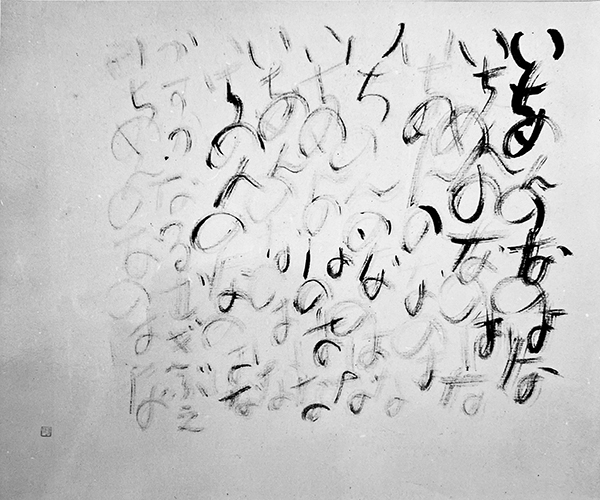 いちめんのなのはな
いちめんのなのはな
いちめんのなのはな
いちめんのなのはな
いちめんのなのはな
いちめんのなのはな
いちめんのなのはな
かすかなるむぎぶえ
いちめんのなのはな